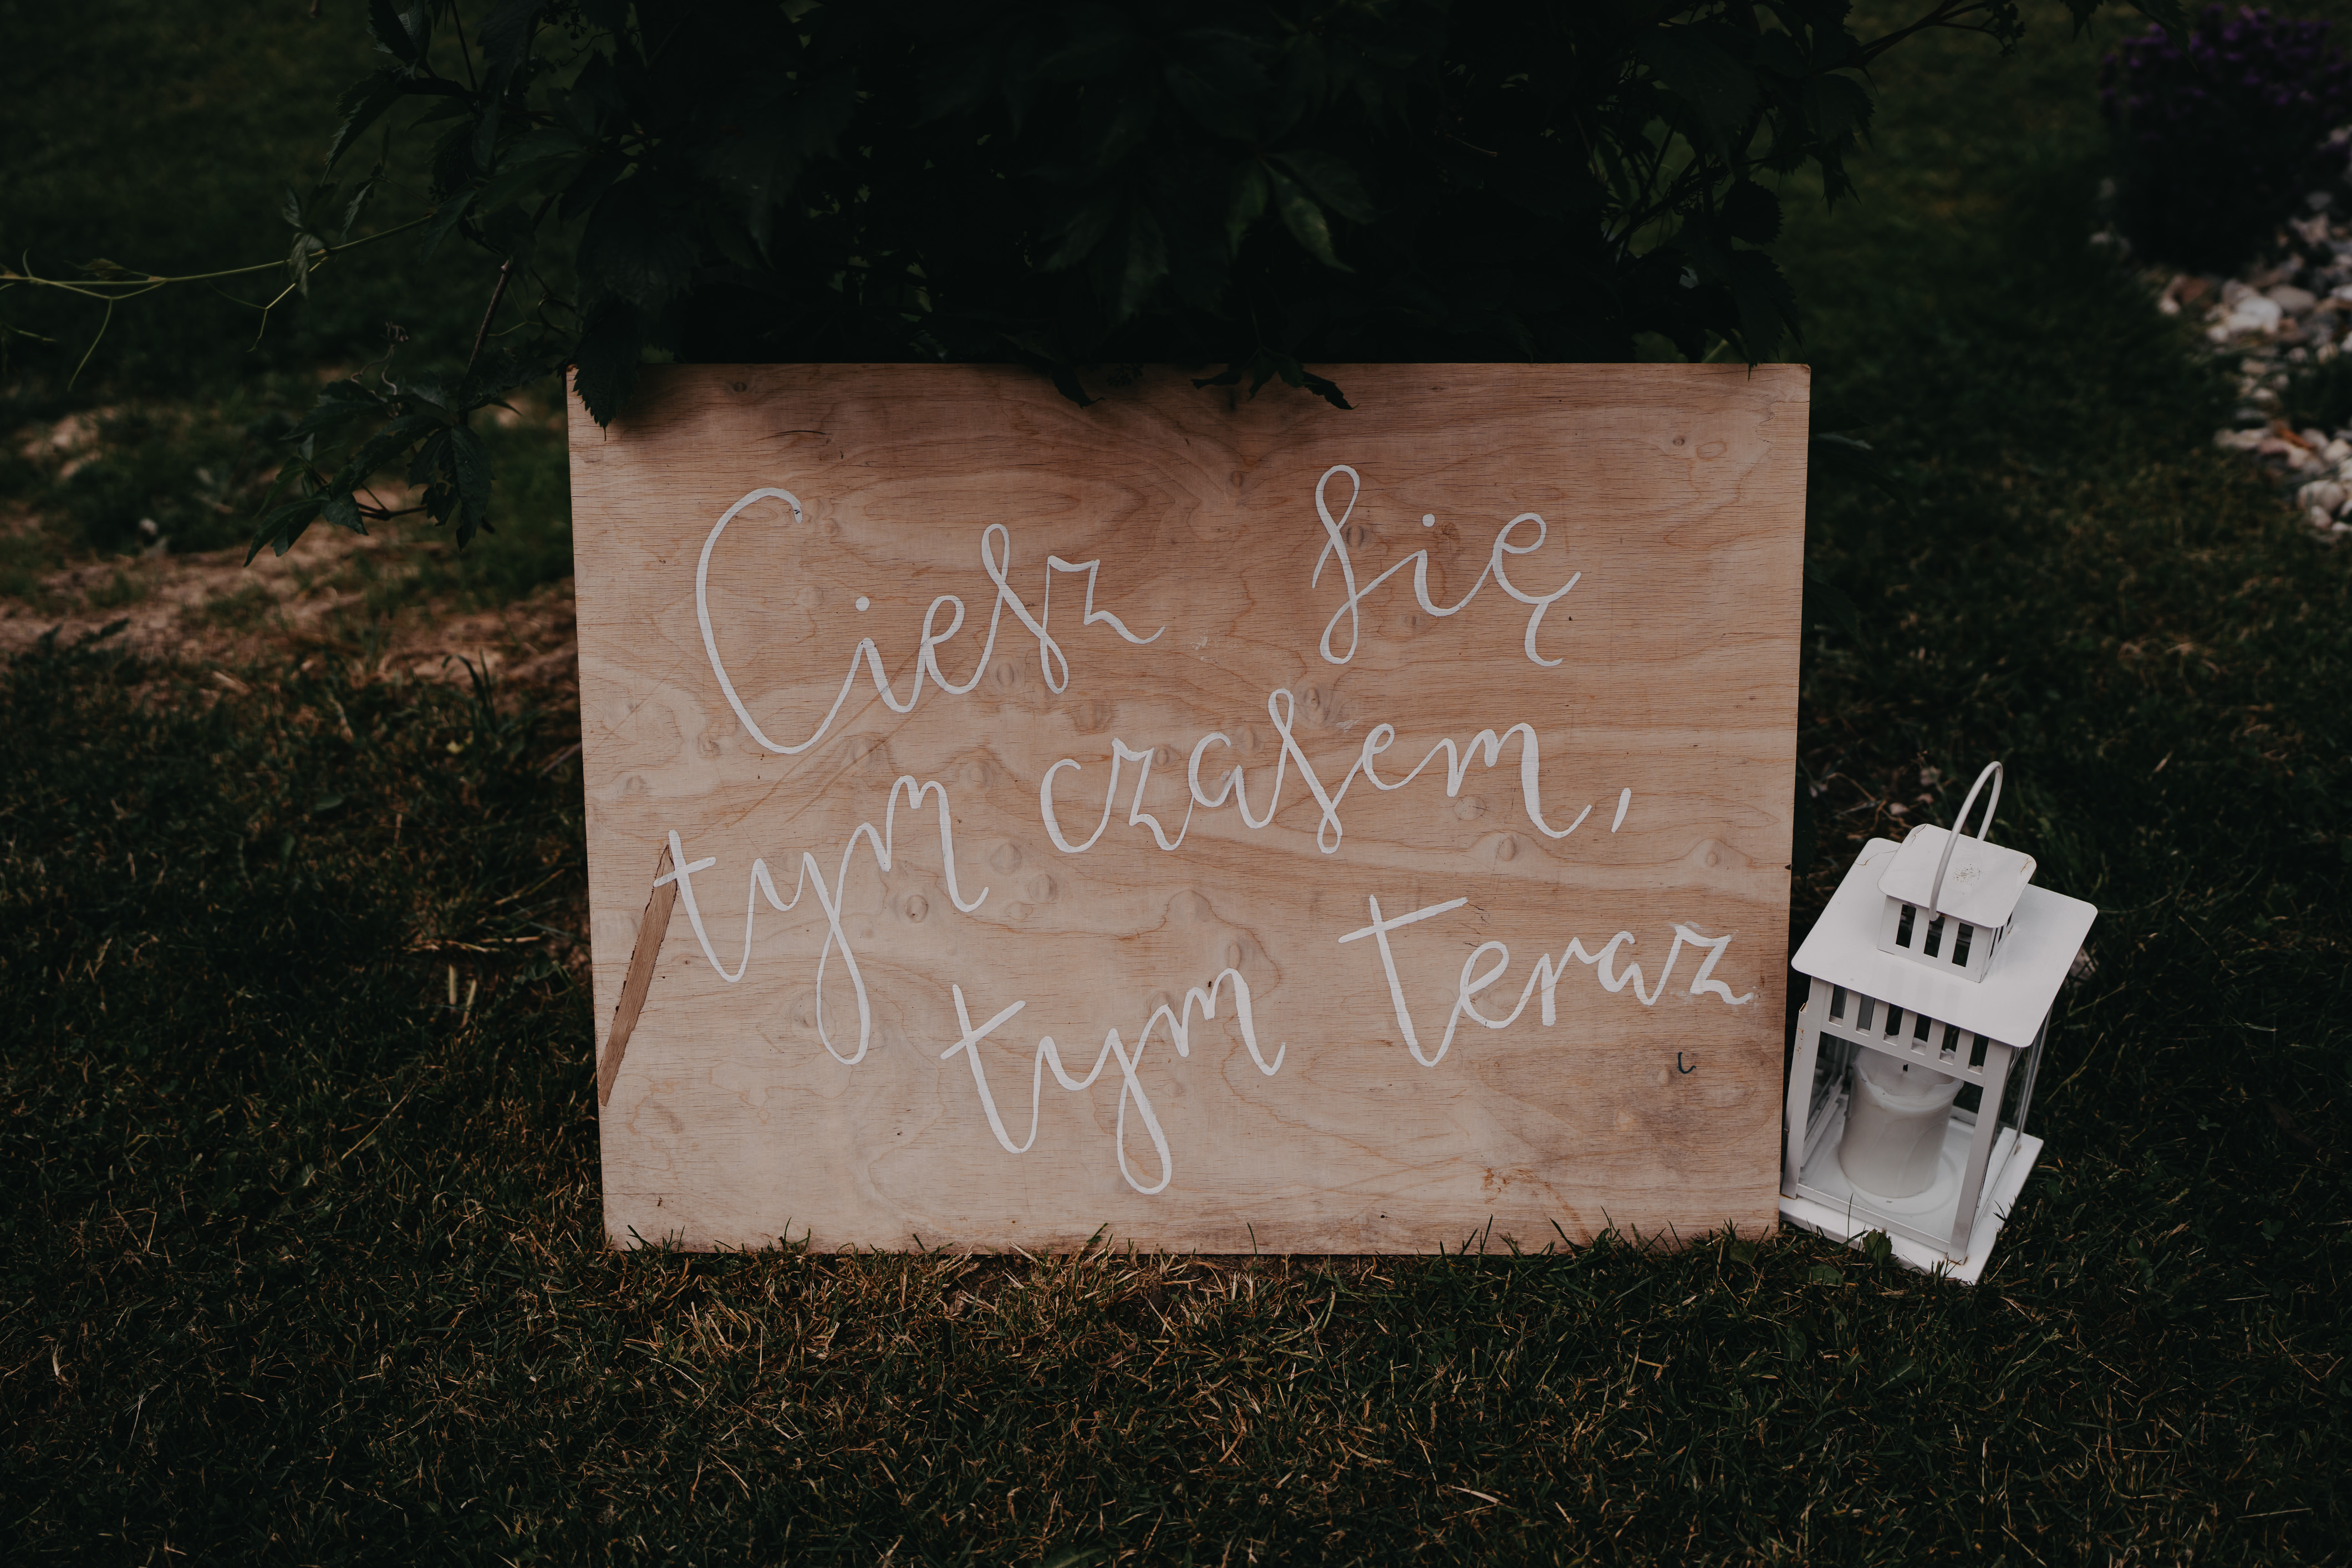 Ciesz się
tym czasem,
tym teraz